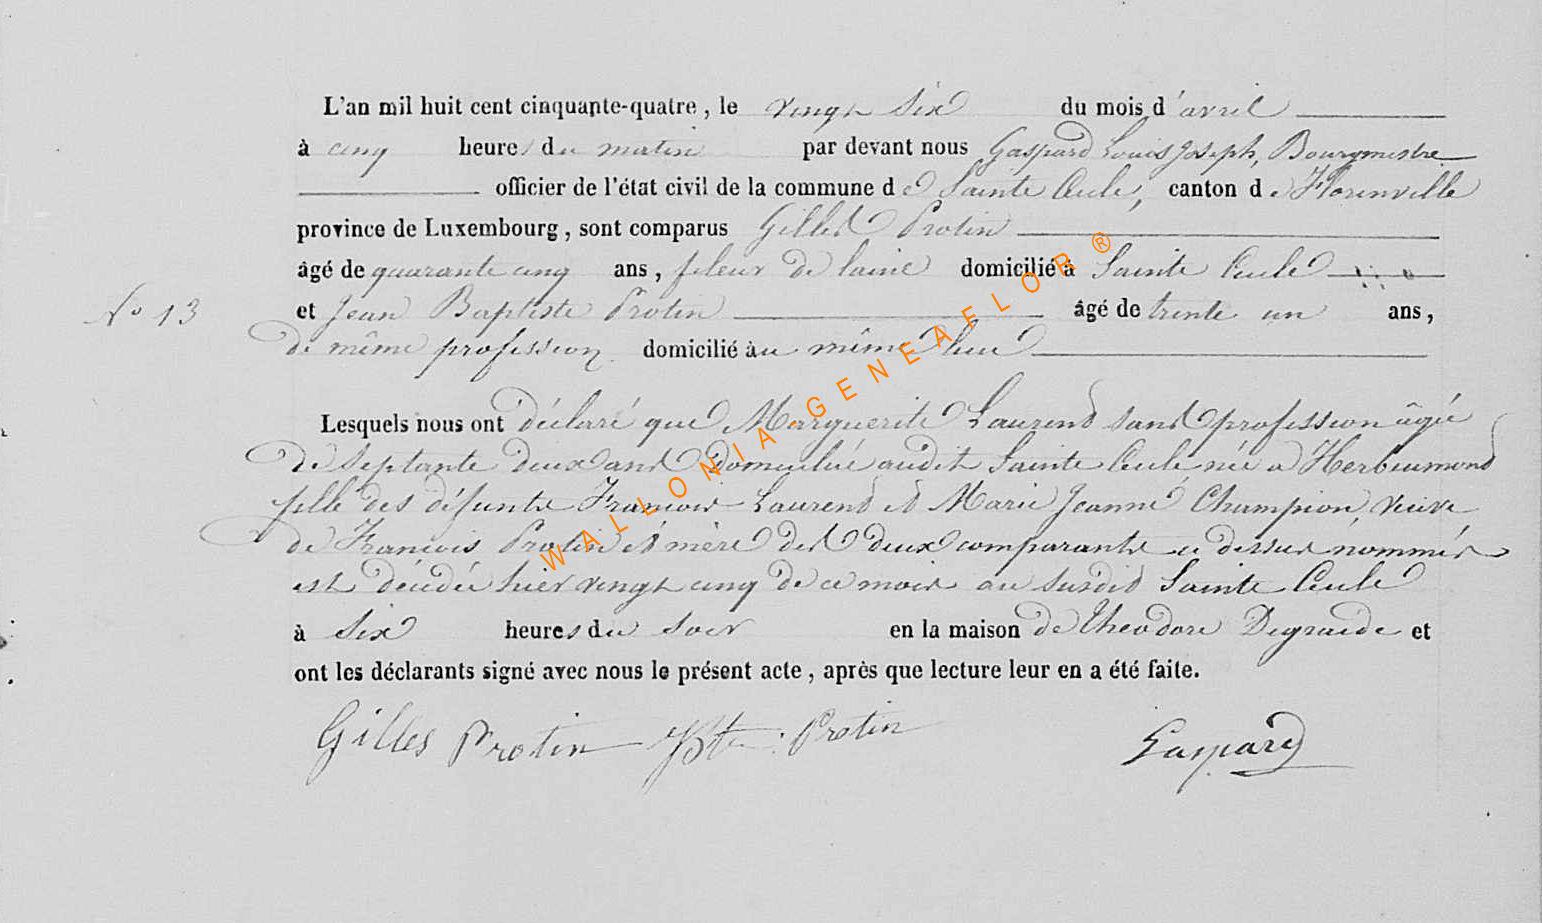 L'an mil huit cent cinquante-quatre, le vingt six du mois d'avril
à cinq heures du matin par devant nous Gaspard Louis Joseph, Bourgmestre
officier de l'état civil de la commune de Sainte Cecile, canton de Florenville
province de Luxembourg, sont comparus Gilles Protin
âgé de quarante cinq ans, fileur de laine domicilié à Sainte Cecile
No 13
et Jean Baptiste Protin âgé de trente un ans,
de même profession domicilié au même lieu
Lesquels nous ont déclaré que Marguerite Laurend sans profession âgée
de septante deux ans domiciliée audit Sainte Cecile née a Herbeumond
fille des défunts François Laurend et Marie Jeanne Champion, veuve
de François Protin et mère des deux comparants ci dessus nommés
est décédée hier vingt cinq de ce mois au susdit Sainte Cecile
à six heures du soir en la maison de Théodore Degraide et
ont les déclarants signé avec nous le présent acte, après que lecture leur en a été faite.
Gilles Protin JBte Protin Gaspard
WALLONIA-GENEAFLOR ®